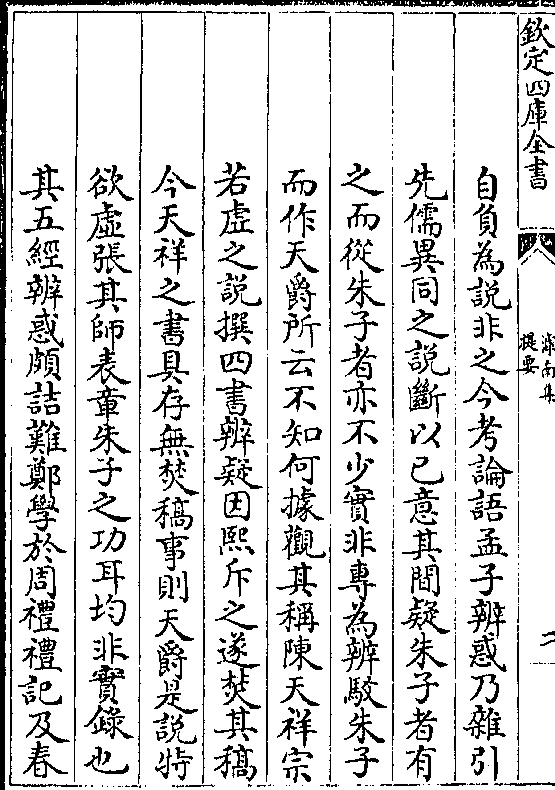 欽定四庫全書
滹南集
提要
二
自負為説非之今考論語孟子辨惑乃雜引
先儒異同之説斷以己意其間疑朱子者有
之而從朱子者亦不少實非專為辨駁朱子
而作天爵所云不知何據觀其稱陳天祥宗
若虛之説撰四書辨疑因熙斥之遂焚其稿
今天祥之書具存無焚稿事則天爵是説特
欲虛張其師表章朱子之功耳均非實錄也
其五經辨惑頗詰難鄭學於周禮禮記及春